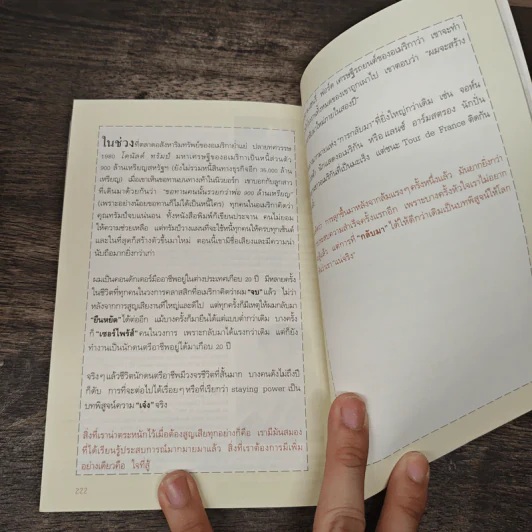 ในช่วงที่ตลาดอสังหาริมทรัพย์ของอเมริกาย่ำแย่ ปลายทศวรรษ
1980 โดนัลด์ ทรัมป์ มหาเศรษฐีของอเมริกาเป็นหนี้ส่วนตัว
900 ล้านเหรียญสหรัฐฯ (ยังไม่รวมหนี้สินทางธุรกิจอีก 36,000 ล้าน
เหรียญ) เมื่อเขาเห็นขอทานบนทางเท้าในนิวยอร์ก เขาบอกกับลูกสาว
ที่เดินมาด้วยกันว่า "ขอทานคนนั้นรวยกว่าพ่อ 900 ล้านเหรียญ"
(เพราะอย่างน้อยขอทานก็ไม่ได้เป็นหนี้ใคร) ทุกคนในอเมริกาคิดว่า
คุณทรัมป์จบแน่นอน ทั้งหนังสือพิมพ์ก็เขียนประจาน คนไม่ยอม
ให้ความช่วยเหลือ แต่ทรัมป์วางแผนที่จะใช้หนี้ทุกคนให้ครบทุกเซ็นต์
และในที่สุดก็สร้างตัวขึ้นมาใหม่ ตอนนี้เขามีชื่อเสียงและมีความน่า
นับถือมากยิ่งกว่าเก่า
ผมเป็นคอนดักเตอร์มืออาชีพอยู่ในต่างประเทศเกือบ 20 ปี มีหลายครั้ง
ในชีวิตที่ทุกคนในวงการคลาสสิกที่อเมริกาคิดว่าผม "จบ" แล้ว ไม่ว่า
หลังจากการสูญเสียงานที่ใหญ่และดีไป แต่ทุกครั้งก็มีเหตุให้ผมกลับมา
"ยืนหยัด" ได้ต่ออีก แม้บางครั้งก็มายืนได้แต่แบบต่ำกว่าเดิม บางครั้ง
ก็ "เซอร์ไพร้ส์" คนในวงการ เพราะกลับมาได้แรงกว่าเดิม แต่ก็ยัง
ทำงานเป็นนักดนตรีอาชีพอยู่ได้มาเกือบ 20 ปี
จริงๆ แล้วชีวิตนักดนตรีอาชีพมีวงจรชีวิตที่สั้นมาก บางคนดังไม่ถึงปี
ก็ดับ การที่จะต่อไปได้เรื่อยๆ หรือที่เรียกว่า staying power เป็น
บทพิสูจน์ความ "เจ๋ง" จริง
สิ่งที่เราน่าตระหนักไว้เมื่อต้องสูญเสียทุกอย่างก็คือ เรามีมันสมอง
ที่ได้เรียนรู้ประสบการณ์มากมายมาแล้ว สิ่งที่เราต้องการมีเพิ่ม
อย่างเดียวคือ ใจที่สู้
222
ฟอร์ด เศรษฐีรถยนต์ของอเมริกาว่า เขาจะทำ
ทั้งหมดของเขาถูกเผาไป เขาตอบว่า "ผมจะสร้าง
ใหม่ภายในสองปี"
"การกลับมา" ที่ยิ่งใหญ่กว่าเดิม เช่น จอห์น
ของอเมริกัน หรือ แลนซ์ อาร์มสตรอง นักปั่น
เป็นมะเร็ง แต่ชนะ Tour de France ติดกัน
การลุกขึ้นมาหลังจากล้มแรงๆ ครั้งหนึ่งแล้ว มันยากยิ่งกว่า
ความสำเร็จครั้งแรกอีก เพราะบางครั้งหัวใจเราไม่อยาก
แล้ว แต่การที่ "กลับมา" ได้ให้ดีกว่าเดิมเป็นบทพิสูจน์ให้โลก
"แน่จริง"